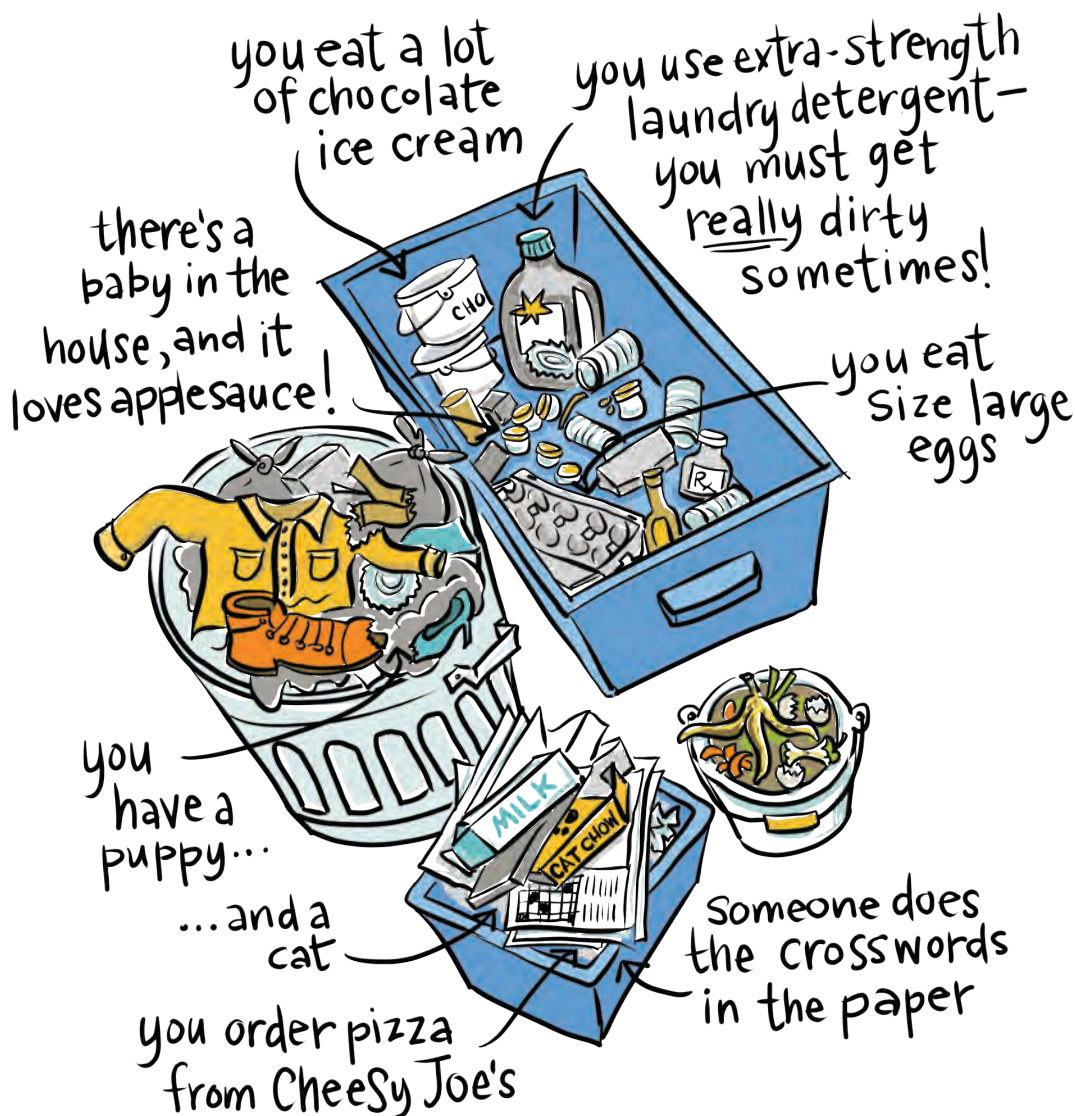 you eat a lot
of chocolate
ice cream
you use extra-strength
laundry detergent—
you must get
really dirty
sometimes!
there's a
baby in the
house, and it
loves applesauce!
CHO
you eat
size large
eggs
Rx
you
have a
puppy...
MILK
CAT CHOW
...and a
cat
someone does
the crosswords
in the paper
you order pizza
from Cheesy Joe's